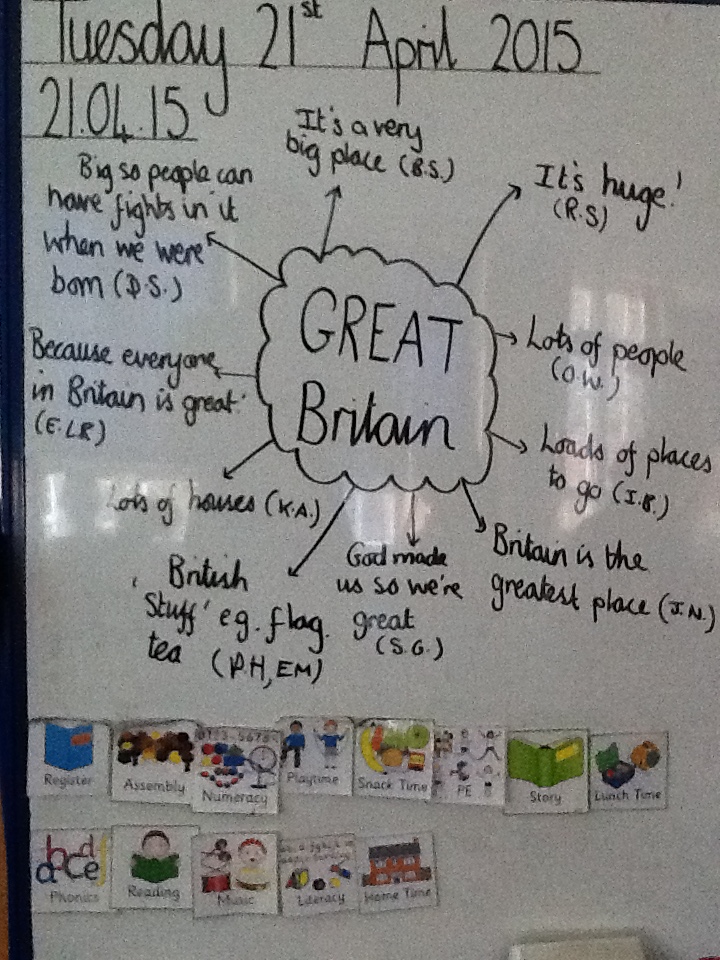 Tuesday 21st April 2015
21.04.15
It's a very
big place (B.S.)
It's huge!
(R.S)
Big so people can
have fights in it
when we were
born (D.S.)
GREAT
Britain
Lots of people
(O.W.)
Loads of places
to go (I.B.)
Because everyone
in Britain is great.
(E.L.R)
Britain is the
greatest place (J.N.)
Lots of houses (K.A.)
God made
us so we're
great
(S.G.)
'British
Stuff' eg. flag.
tea
(PH, EM)
Register
Assembly
Numeracy
Playtime
Snack Time
PE
Story
Lunch Time
abcde
Phonics
Reading
Music
Literacy
Home Time